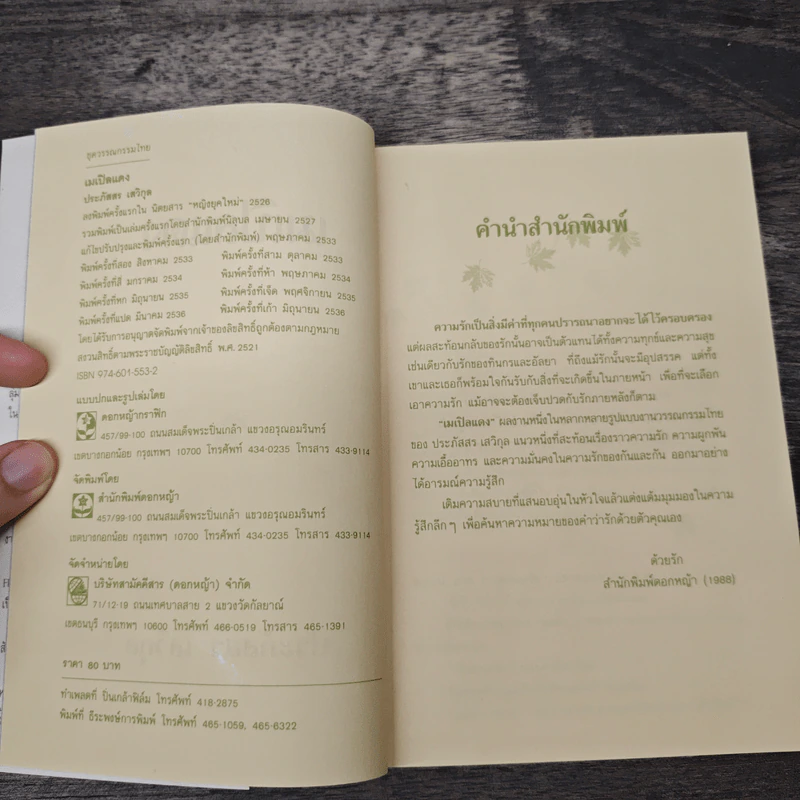 ชุดวรรณกรรมไทย
เมเปิลแดง
ประภัสสร เสวิกุล
ลงพิมพ์ครั้งแรกใน นิตยสาร "หญิงยุคใหม่" 2526
รวมพิมพ์เป็นเล่มครั้งแรกโดยสำนักพิมพ์นิลุบล เมษายน 2527
แก้ไขปรับปรุงและพิมพ์ครั้งแรก (โดยสำนักพิมพ์) พฤษภาคม 2533
พิมพ์ครั้งที่สอง สิงหาคม 2533 พิมพ์ครั้งที่สาม ตุลาคม 2533
พิมพ์ครั้งที่สี่ มกราคม 2534 พิมพ์ครั้งที่ห้า พฤษภาคม 2534
พิมพ์ครั้งที่หก มิถุนายน 2535 พิมพ์ครั้งที่เจ็ด พฤศจิกายน 2535
พิมพ์ครั้งที่แปด มีนาคม 2536 พิมพ์ครั้งที่เก้า มิถุนายน 2536
โดยได้รับการอนุญาตจัดพิมพ์จากเจ้าของลิขสิทธิ์ถูกต้องตามกฎหมาย
สงวนสิทธิ์ตามพระราชบัญญัติลิขสิทธิ์ พ.ศ. 2521
ISBN 974-601-553-2
แบบปกและรูปเล่มโดย
ดอกหญ้ากราฟิก
457/99-100 ถนนสมเด็จพระปิ่นเกล้า แขวงอรุณอมรินทร์
เขตบางกอกน้อย กรุงเทพฯ 10700 โทรศัพท์ 434-0235 โทรสาร 433-9114
จัดพิมพ์โดย
สำนักพิมพ์ดอกหญ้า
457/99-100 ถนนสมเด็จพระปิ่นเกล้า แขวงอรุณอมรินทร์
เขตบางกอกน้อย กรุงเทพฯ 10700 โทรศัพท์ 434-0235 โทรสาร 433-9114
จัดจำหน่ายโดย
บริษัทสามัคคีสาร (ดอกหญ้า) จำกัด
71/12-19 ถนนเทศบาลสาย 2 แขวงวัดกัลยาณ์
เขตธนบุรี กรุงเทพฯ 10600 โทรศัพท์ 466-0519 โทรสาร 465-1391
ราคา 80 บาท
ทำเพลตที่ ปิ่นเกล้าฟิล์ม โทรศัพท์ 418-2875
พิมพ์ที่ ธีระพงษ์การพิมพ์ โทรศัพท์ 465-1059, 465-6322
คำนำสำนักพิมพ์
ความรักเป็นสิ่งมีค่าที่ทุกคนปรารถนาอยากจะได้ไว้ครอบครอง
แต่ผลสะท้อนกลับของรักนั้นอาจเป็นตัวแทนได้ทั้งความทุกข์และความสุข
เช่นเดียวกับรักของทินกรและอัลยา ที่ถึงแม้รักนั้นจะมีอุปสรรค แต่ทั้ง
เขาและเธอก็พร้อมใจกันรับกับสิ่งที่จะเกิดขึ้นในภายหน้า เพื่อที่จะเลือก
เอาความรัก แม้อาจจะต้องเจ็บปวดกับรักภายหลังก็ตาม
"เมเปิลแดง" ผลงานหนึ่งในหลากหลายรูปแบบงานวรรณกรรมไทย
ของ ประภัสสร เสวิกุล แนวหนึ่งที่สะท้อนเรื่องราวความรัก ความผูกพัน
ความเอื้ออาทร และความมั่นคงในความรักของกันและกัน ออกมาอย่าง
ได้อารมณ์ความรู้สึก
เติมความสบายที่แสนอบอุ่นในหัวใจแล้วแต่งแต้มมุมมองในความ
รู้สึกลึกๆ เพื่อค้นหาความหมายของคำว่ารักด้วยตัวคุณเอง
ด้วยรัก
สำนักพิมพ์ดอกหญ้า (1988)